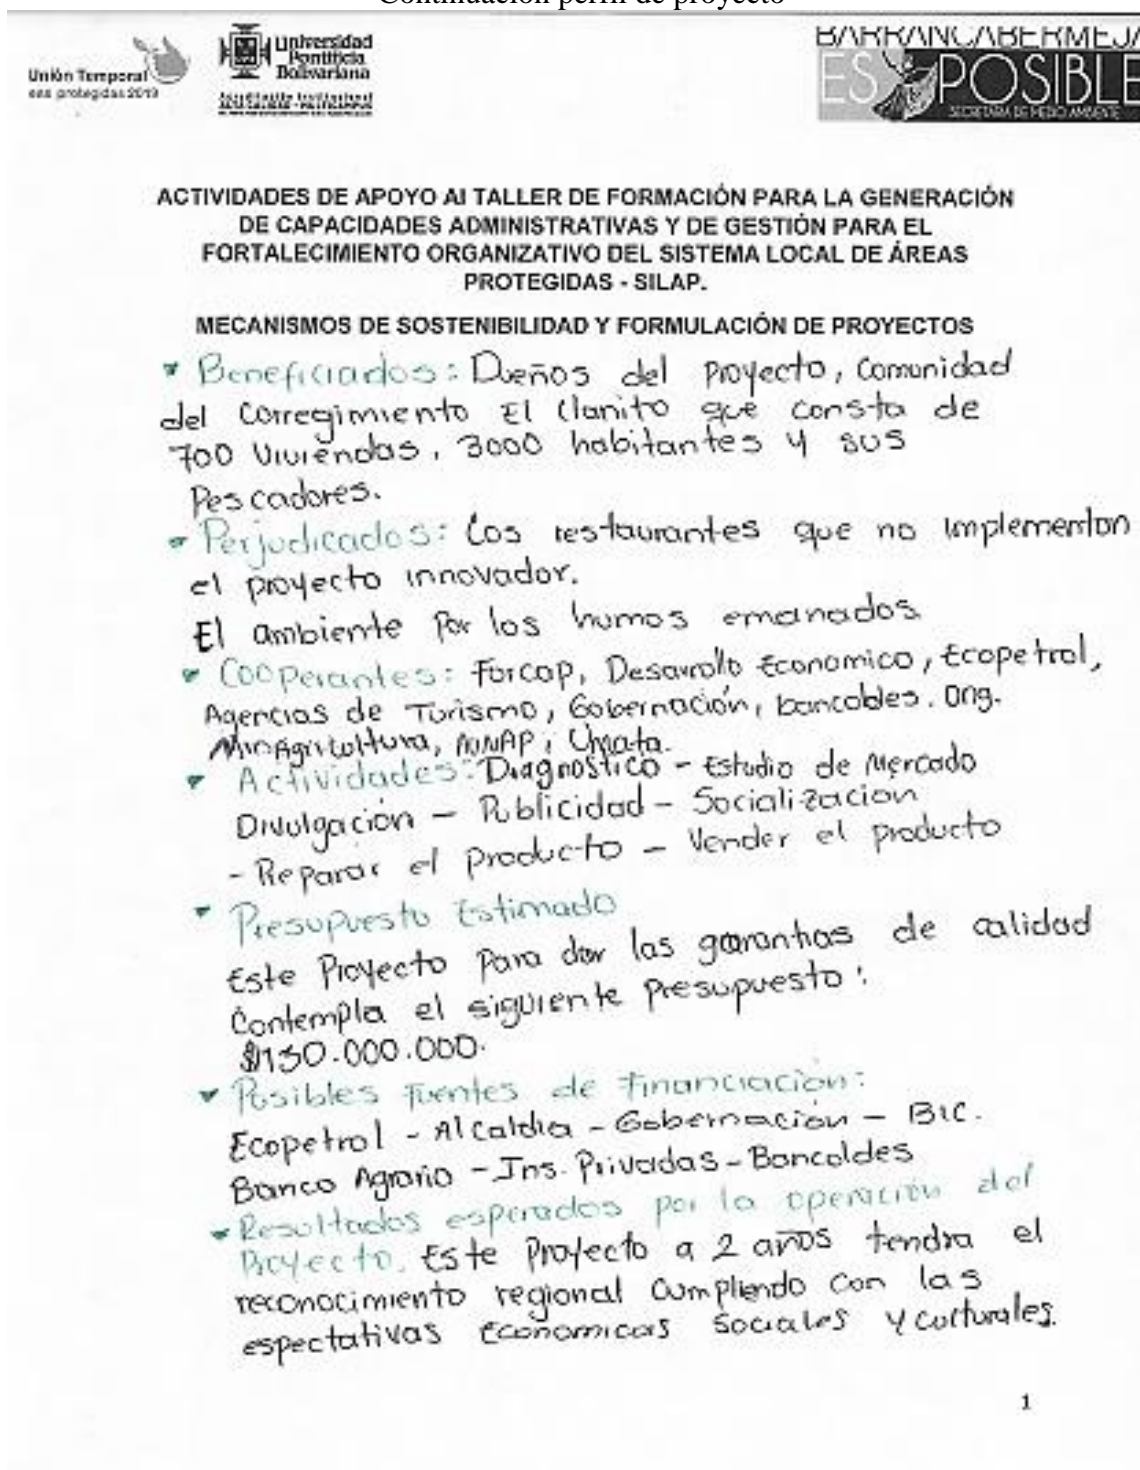 Continuación perfil de proyecto
Unión Temporal
eas protegidas 2013
Universidad
Pontificia
Bolivariana
Acreditación Institucional
BARRANCABERMEJA
ES POSIBLE
SECRETARÍA DE MEDIO AMBIENTE
ACTIVIDADES DE APOYO Al TALLER DE FORMACIÓN PARA LA GENERACIÓN
DE CAPACIDADES ADMINISTRATIVAS Y DE GESTIÓN PARA EL
FORTALECIMIENTO ORGANIZATIVO DEL SISTEMA LOCAL DE ÁREAS
PROTEGIDAS - SILAP.
MECANISMOS DE SOSTENIBILIDAD Y FORMULACIÓN DE PROYECTOS
Beneficiados: Dueños del Proyecto, Comunidad
del Corregimiento El Llanito que consta de
700 Viviendas, 3000 habitantes y sus
Pescadores.
Perjudicados: Los restaurantes que no implementan
el proyecto innovador.
El ambiente Por los humos emanados
Cooperantes: Forcap, Desarrollo Economico, Ecopetrol,
Agencias de Turismo, Gobernación, bancoldes. Ong.
MinAgricultura, AUNAP, Umata.
Actividades: Diagnostico - Estudio de Mercado
Divulgación - Publicidad - Socialización
- Reparar el producto - Vender el producto
Presupuesto Estimado
Este Proyecto Para dar las garantias de calidad
Contempla el siguiente Presupuesto:
$130.000.000.
Posibles Fuentes de Financiación:
Ecopetrol - Alcaldia - Gobernación - BIC.
Banco Agrario - Ins. Privadas - Bancoldes
Resultados esperados por la operación del
Proyecto. Este Proyecto a 2 años tendra el
reconocimiento regional Cumpliendo con las
espectativas Economicas Sociales y culturales.
1